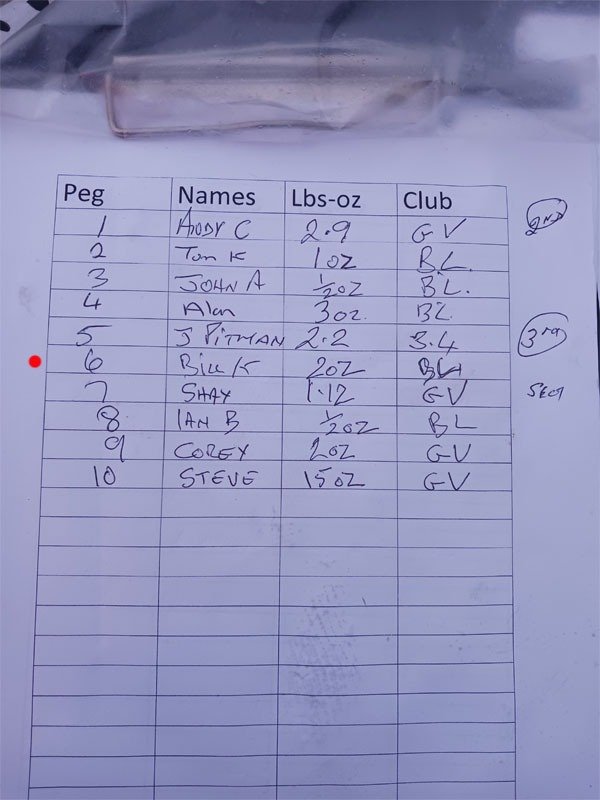 Peg Names Lbs-oz Club
1 ANDY C 2.9 GV 2ND
2 Tom K 1oz BL.
3 JOHN A ½oz BL.
4 Alan 3oz. BL
5 J PITMAN 2.2 3.4 3rd
6 Bill K 2oz
7 SHAY 1.12 GV Sect
8 IAN B ½oz BL
9 COREY 2oz GV
10 STEVE 15oz GV